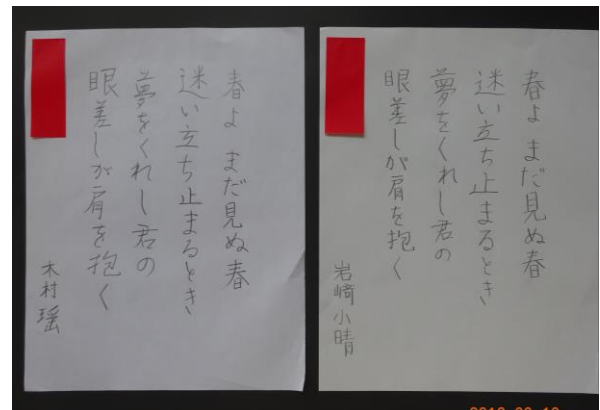 春よ まだ見ぬ春
迷い立ち止まるとき
夢をくれし君の
眼差しが肩を抱く
木村 瑶
春よ まだ見ぬ春
迷い立ち止まるとき
夢をくれし君の
眼差しが肩を抱く
岩崎小晴